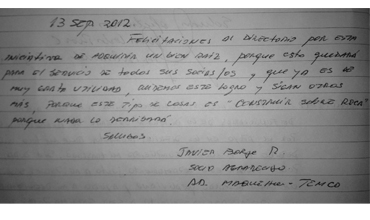 13 SEP 2012.
FELICITACIONES AL DIRECTORIO POR ESTA
INICIATIVA DE ADQUIRIR UN BIEN RAIZ, PORQUE ESTO QUEDARÁ
PARA EL SERVICIO DE TODOS SUS SOCIAS/OS, Y QUE YA ES DE
MUY GRATA UTILIDAD, ESTE LOGRO Y SIGAN OTROS
MÁS, PORQUE ESTE TIPO DE COSAS ES "CONSTRUIR SOBRE ROCA"
PORQUE NADA LO DERRIBARÁ".
SALUDOS.
JAVIER BORGE R.
SOCIO AGRADECIDO
AD. MAQUEHUE - TEMCO